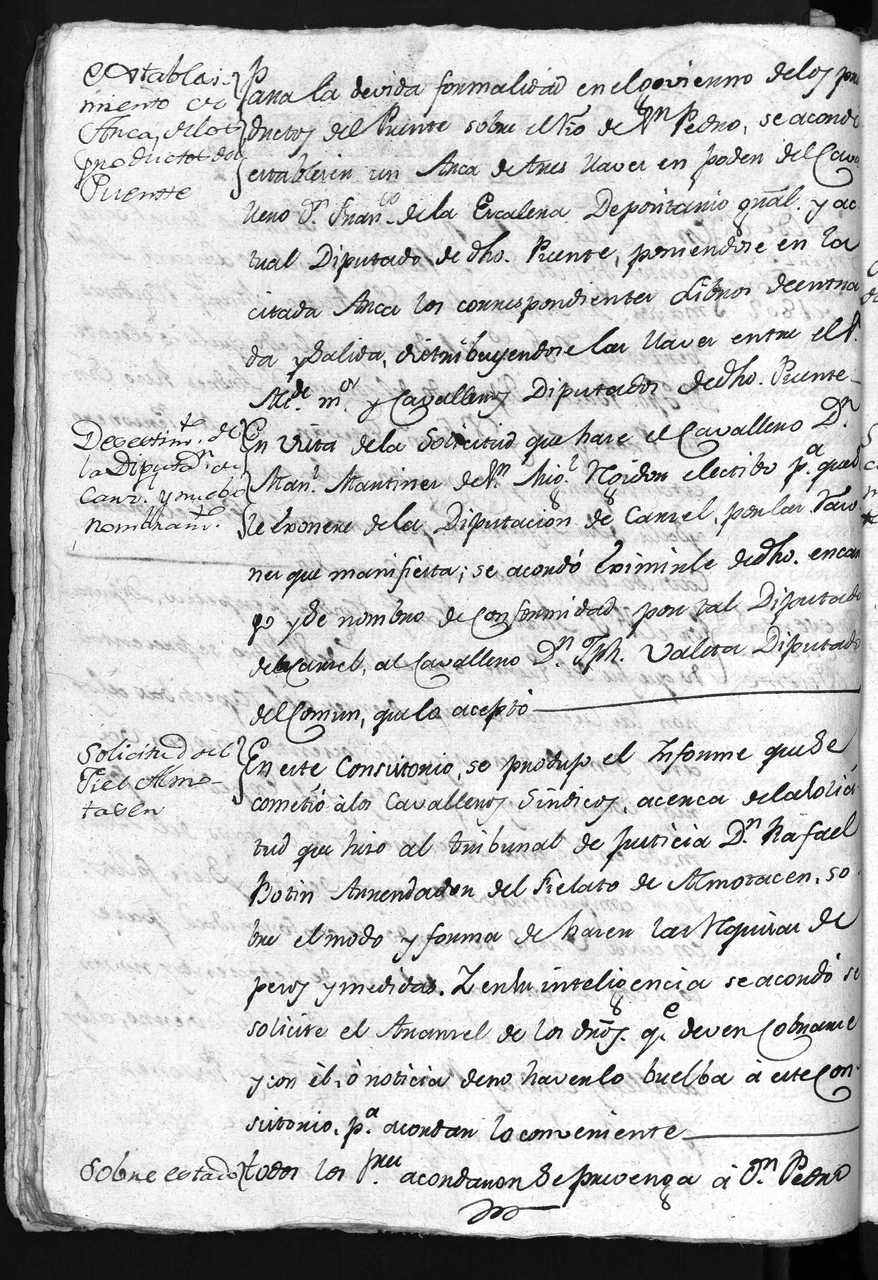 Establesi-
miento de
Arca, de los
productos del
Puente
Para la devida formalidad en el govierno de los pro
ductos del Puente sobre el Rio de Sn Pedro, se acordó
establecer un Arca de tres llaves en poder del Cava
llero Dn. Franco. de la Escalera Depositario gral. y ac
tual Diputado de dho. Puente, poniendose en la
citada Arca los correspondientes Libros de entra
da y Salida, distribuyendose las llaves entre el Sr.
Alcde. mor. y Cavalleros Diputados de dho. Puente
Desestimt. de
la Diputan. de
Carl. y nuebo
nombramt.
En vista de la Solicitud que hace el Cavallero Dn
Manl. Martinez de Sn Migl. Regidor electibo pa. que
se le exonere de la Diputacion de Carcel, por las razo
nes que manifiesta; se acordó eximirle de dho. encar
go y se nombro de Conformidad por tal Diputado
de Carcel, al Cavallero Dn Jph. Valeta Diputado
del Comun, que lo aceptó
Solicitud del
Fiel Almo-
tasen
En este Consistorio, se produjo el Informe que se
cometió a los Cavalleros Sindicos, acerca de la solici
tud que hizo al tribunal de Justicia Dn. Rafael
Botin Arrendador del Fielato de Almotacen, so-
bre el modo y forma de hacer las requisas de
pesos y medidas. Y en su inteligencia se acordó se
solicite el Arancel de los dros. qe. deven Cobrarse
y con él, ó noticia de no haverlo buelba á este Con-
sistorio, pa. acordar lo conveniente
Sobre estado
todos los Sres. acordaron se prevenga á Dn. Pedro